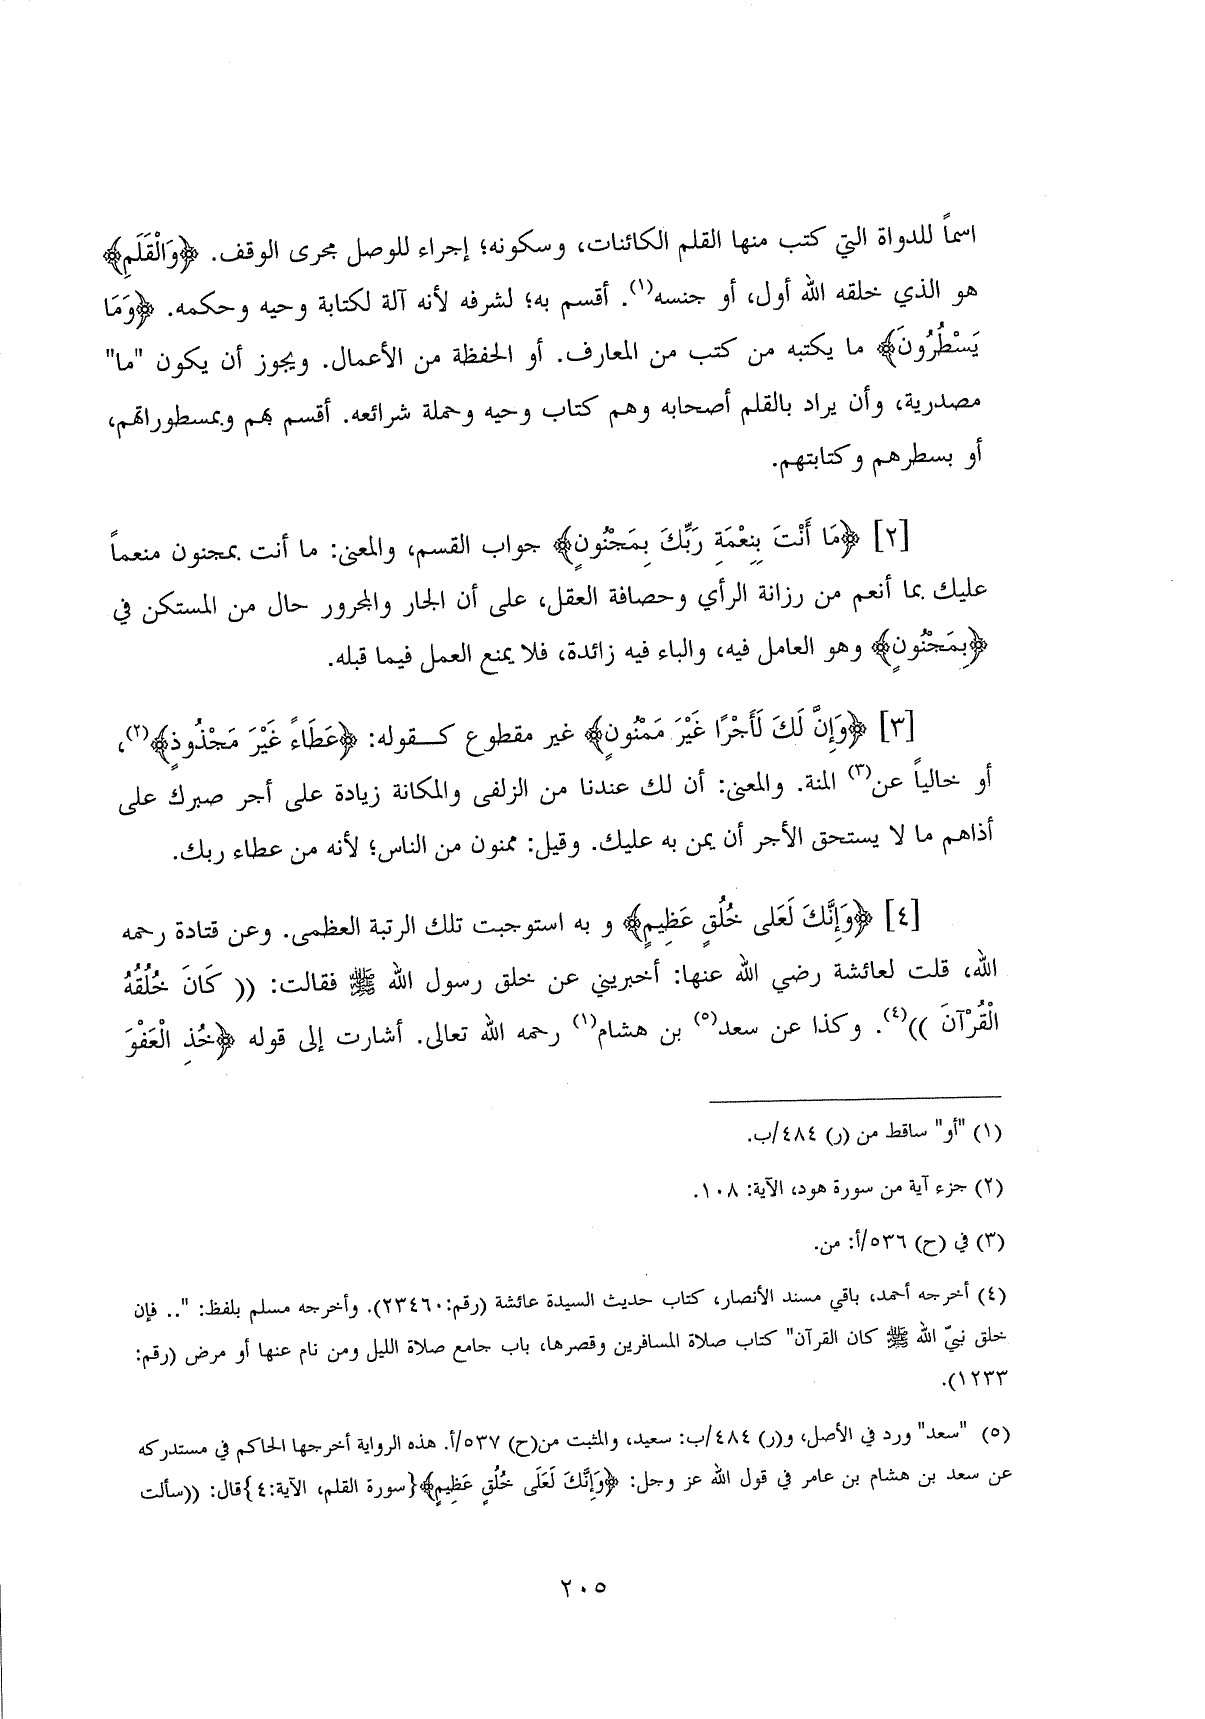 اسماً للدواة التي كتب منها القلم الكائنات، وسكونه؛ إجراء للوصل مجرى الوقف. ﴿وَالْقَلَمِ﴾
هو الذي خلقه الله أول، أو جنسه(١). أقسم به؛ لشرفه لأنه آلة لكتابة وحيه وحكمه. ﴿وَمَا
يَسْطُرُونَ﴾ ما يكتبه من كتب من المعارف. أو الحفظة من الأعمال. ويجوز أن يكون "ما"
مصدرية، وأن يراد بالقلم أصحابه وهم كتاب وحيه وحملة شرائعه. أقسم بهم وبمسطوراتهم،
أو بسطرهم وكتابتهم.
[٢] ﴿مَا أَنْتَ بِنِعْمَةِ رَبِّكَ بِمَجْنُونٍ﴾ جواب القسم، والمعنى: ما أنت بمجنون منعماً
عليك بما أنعم من رزانة الرأي وحصافة العقل، على أن الجار والمجرور حال من المستكن في
﴿بِمَجْنُونٍ﴾ وهو العامل فيه، والباء فيه زائدة، فلا يمنع العمل فيما قبله.
[٣] ﴿وَإِنَّ لَكَ لَأَجْرًا غَيْرَ مَمْنُونٍ﴾ غير مقطوع كـقوله: ﴿عَطَاءً غَيْرَ مَجْذُوذٍ﴾(٢)،
أو خالياً عن(٣) المنة. والمعنى: أن لك عندنا من الزلفى والمكانة زيادة على أجر صبرك على
أذاهم ما لا يستحق الأجر أن يمن به عليك. وقيل: ممنون من الناس؛ لأنه من عطاء ربك.
[٤] ﴿وَإِنَّكَ لَعَلى خُلُقٍ عَظِيمٍ﴾ و به استوجبت تلك الرتبة العظمى. وعن قتادة رحمه
الله، قلت لعائشة رضي الله عنها: أخبريني عن خلق رسول الله ﷺ فقالت: (( كَانَ خُلُقُهُ
الْقُرْآنَ ))(٤). وكذا عن سعد(٥) بن هشام(١) رحمه الله تعالى. أشارت إلى قوله ﴿خُذِ الْعَفْوَ
(١) "أو" ساقط من (ر) ٤٨٤/ب.
(٢) جزء آية من سورة هود، الآية: ١٠٨.
(٣) في (ح) ٥٣٦/أ: من.
(٤) أخرجه أحمد، باقي مسند الأنصار، كتاب حديث السيدة عائشة (رقم:٢٣٤٦٠). وأخرجه مسلم بلفظ: ".. فإن
خلق نبيّ الله ﷺ كان القرآن" كتاب صلاة المسافرين وقصرها، باب جامع صلاة الليل ومن نام عنها أو مرض (رقم:
١٢٣٣).
(٥) "سعد" ورد في الأصل، و(ر) ٤٨٤/ب: سعيد، والمثبت من(ح) ٥٣٧/أ. هذه الرواية أخرجها الحاكم في مستدركه
عن سعد بن هشام بن عامر في قول الله عز وجل: ﴿وَإِنَّكَ لَعَلَى خُلُقٍ عَظِيمٍ﴾{سورة القلم، الآية:٤}قال: ((سألت
٢٠٥